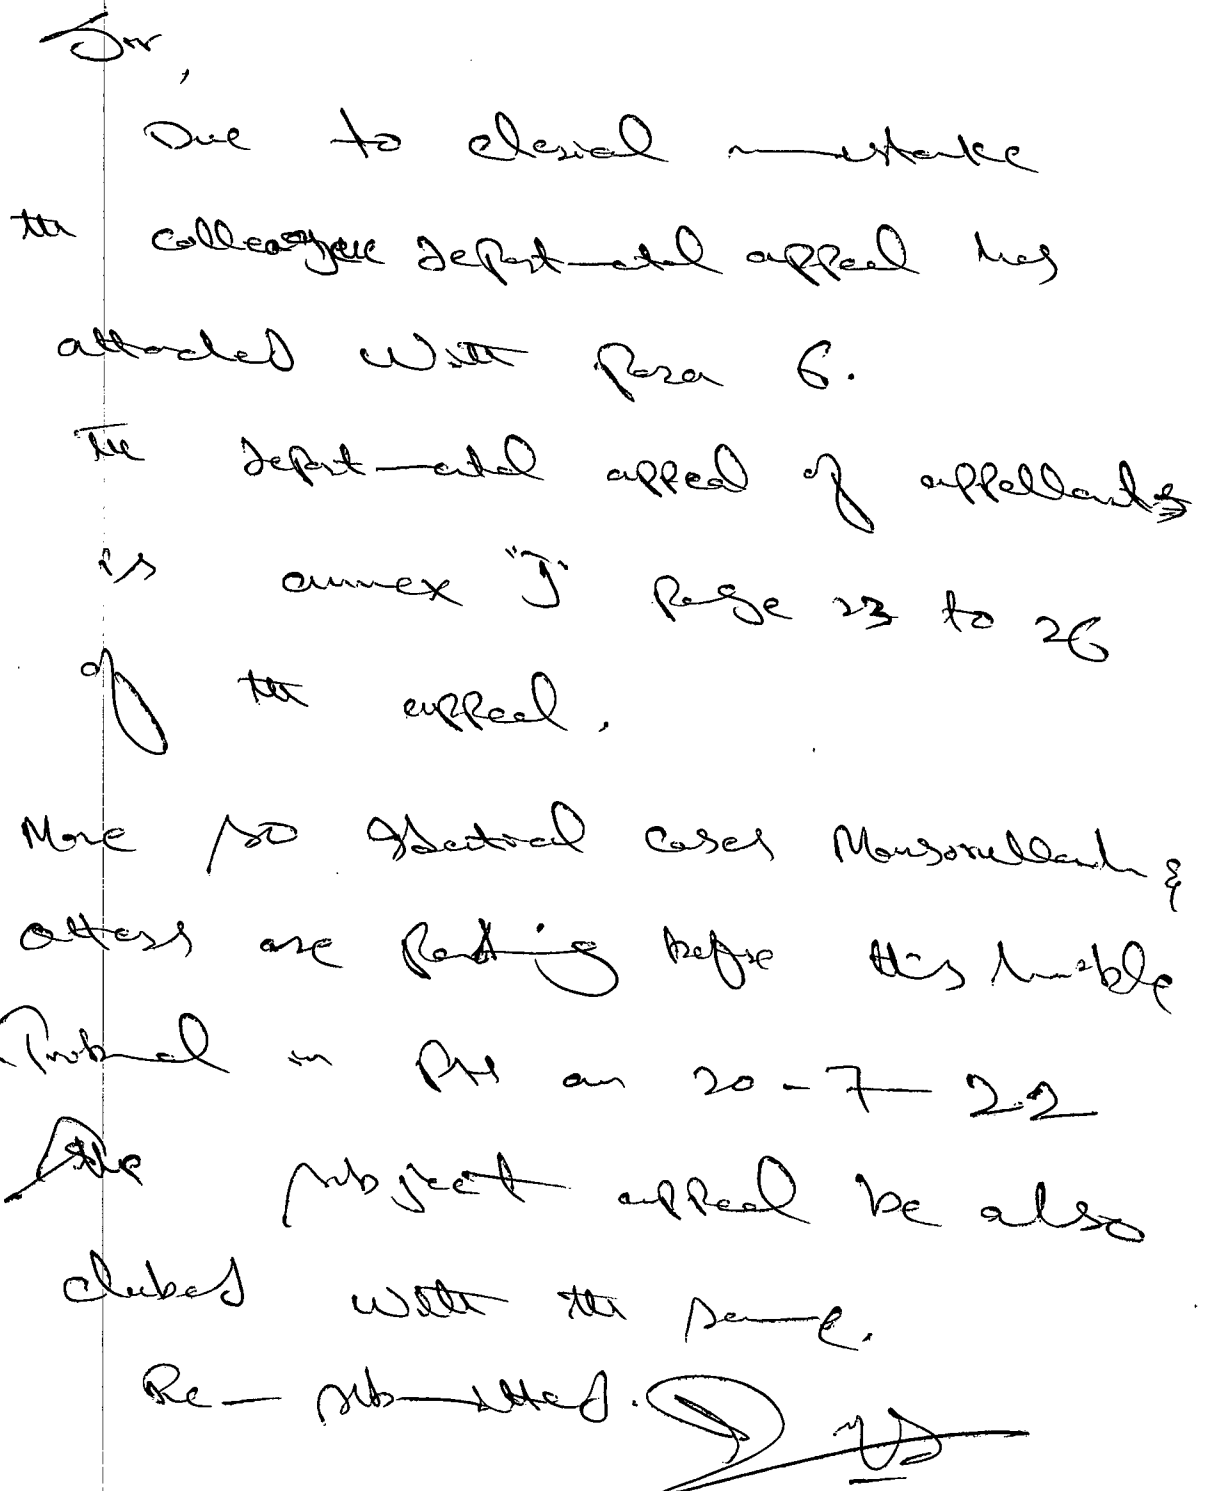 Sir,
Due to clerical mistake
the colleague departmental appeal has
attached with para 6.
The departmental appeal of appellants
is annex "J" page 23 to 26
of the appeal.
More so identical cases Mansoorullah &
others are pending before this humble
Tribunal in PH on 20-7-22
the subject appeal be also
clubed with the same.
Re-submitted.